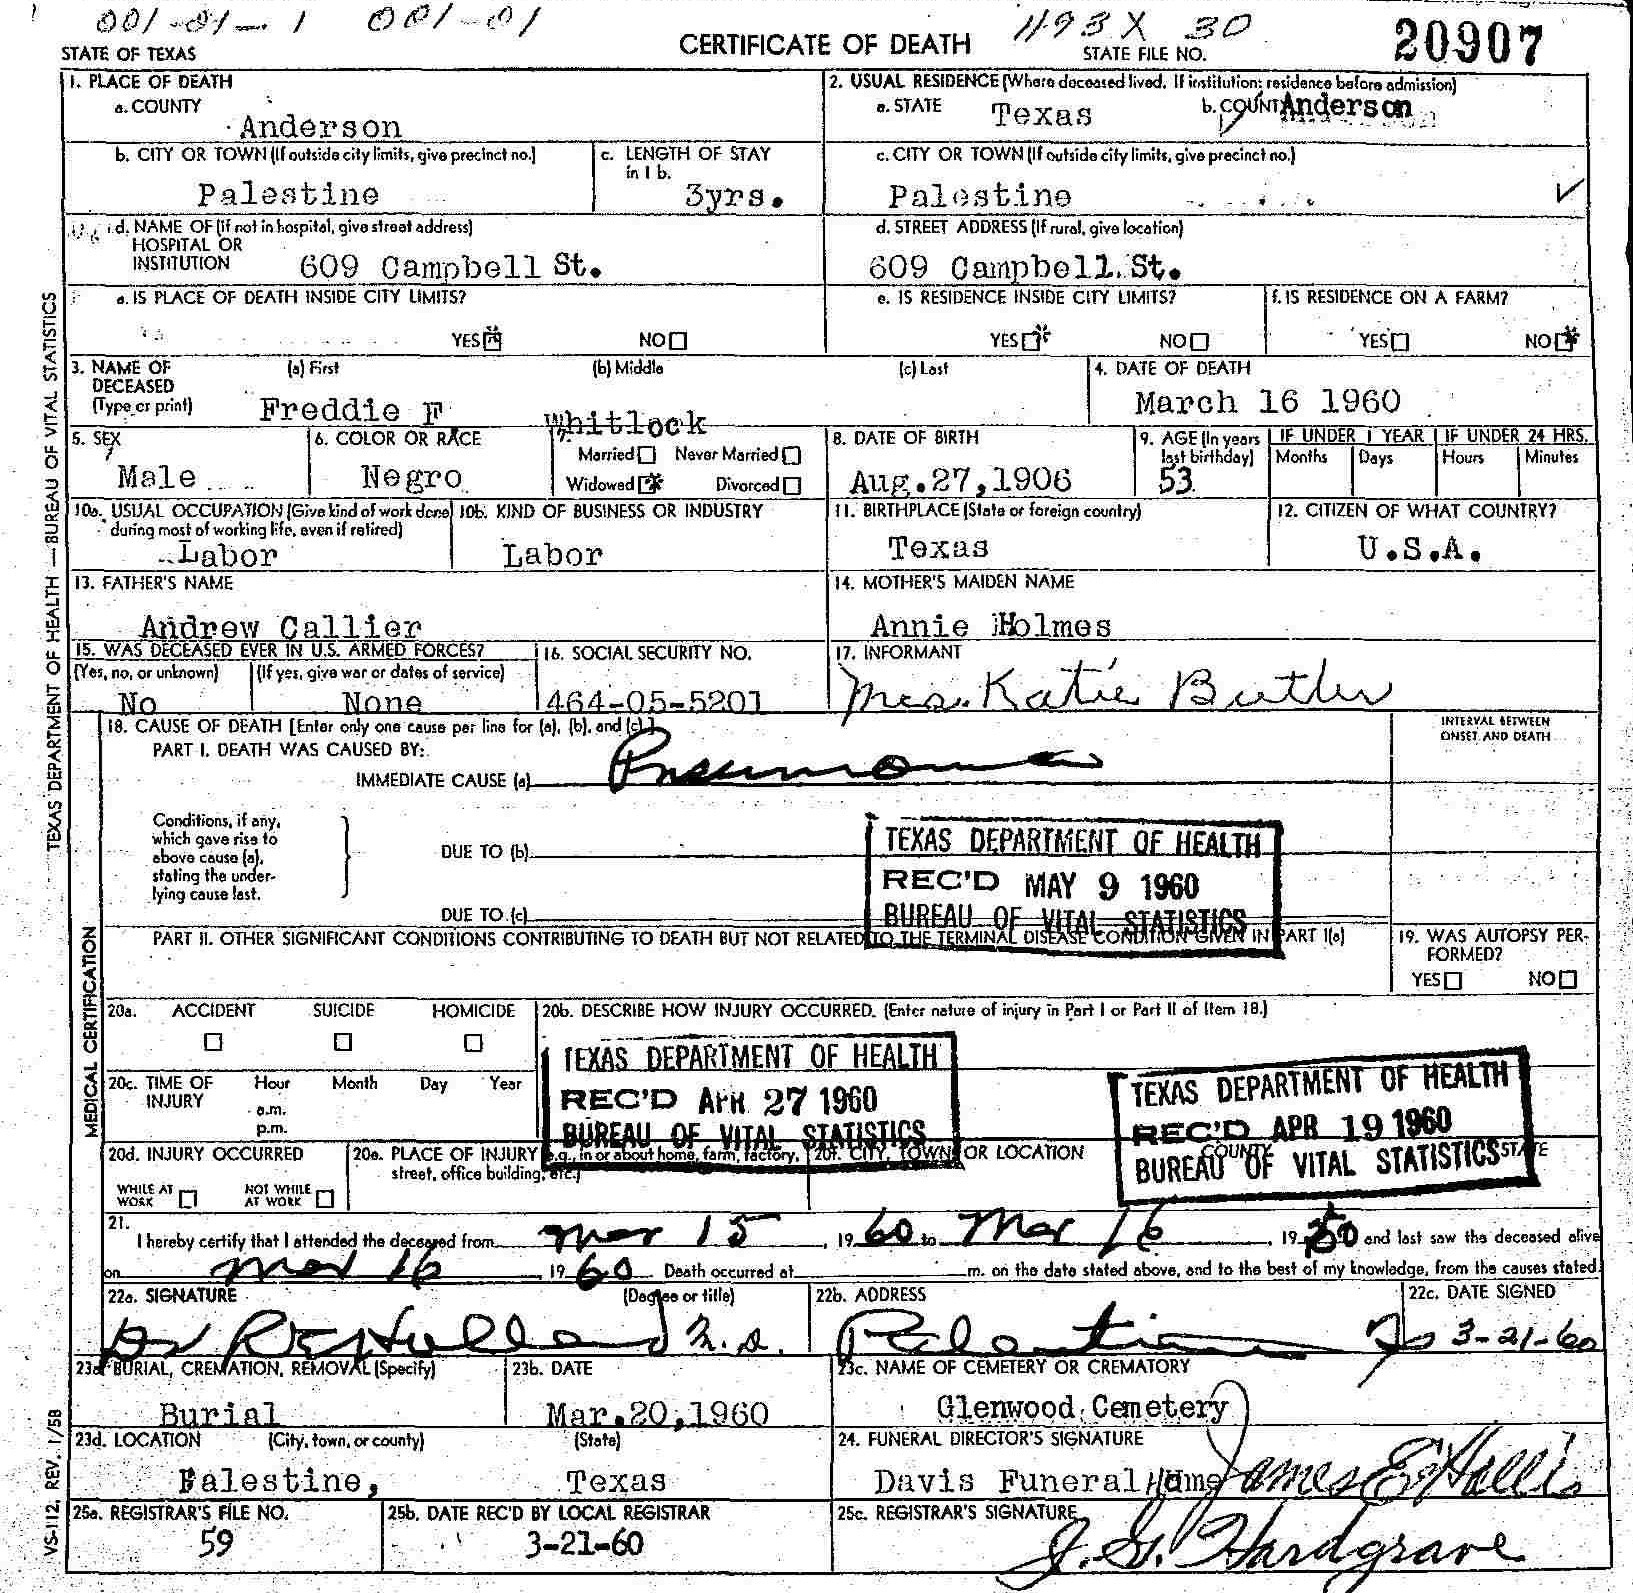 001-01-1 001-01 493X 30
STATE OF TEXAS CERTIFICATE OF DEATH STATE FILE NO. 20907
1. PLACE OF DEATH
a. COUNTY
Anderson
2. USUAL RESIDENCE (Where deceased lived. If institution: residence before admission)
a. STATE Texas b. COUNTY Anderson
b. CITY OR TOWN (If outside city limits, give precinct no.)
Palestine
c. LENGTH OF STAY in 1b.
3yrs.
c. CITY OR TOWN (If outside city limits, give precinct no.)
Palestine
d. NAME OF (If not in hospital, give street address)
HOSPITAL OR
INSTITUTION 609 Campbell St.
d. STREET ADDRESS (If rural, give location)
609 Campbell St.
e. IS PLACE OF DEATH INSIDE CITY LIMITS?
YES NO
e. IS RESIDENCE INSIDE CITY LIMITS?
YES NO
f. IS RESIDENCE ON A FARM?
YES NO
3. NAME OF DECEASED (Type or print)
(a) First (b) Middle (c) Last
Freddie F Whitlock
4. DATE OF DEATH
March 16 1960
5. SEX
Male
6. COLOR OR RACE
Negro
7.
Married Never Married
Widowed Divorced
8. DATE OF BIRTH
Aug.27,1906
9. AGE (In years last birthday)
53
IF UNDER 1 YEAR
Months Days
IF UNDER 24 HRS.
Hours Minutes
10a. USUAL OCCUPATION (Give kind of work done during most of working life, even if retired)
Labor
10b. KIND OF BUSINESS OR INDUSTRY
Labor
11. BIRTHPLACE (State or foreign country)
Texas
12. CITIZEN OF WHAT COUNTRY?
U.S.A.
13. FATHER'S NAME
Andrew Callier
14. MOTHER'S MAIDEN NAME
Annie Holmes
15. WAS DECEASED EVER IN U.S. ARMED FORCES?
(Yes, no, or unknown) (If yes, give war or dates of service)
No None
16. SOCIAL SECURITY NO.
464-05-5201
17. INFORMANT
Mrs. Katie Butler
18. CAUSE OF DEATH [Enter only one cause per line for (a), (b), and (c).]
PART I. DEATH WAS CAUSED BY:
IMMEDIATE CAUSE (a) Pneumonia
INTERVAL BETWEEN ONSET AND DEATH
Conditions, if any, which gave rise to above cause (a), stating the underlying cause last.
DUE TO (b)
DUE TO (c)
TEXAS DEPARTMENT OF HEALTH
REC'D MAY 9 1960
BUREAU OF VITAL STATISTICS
PART II. OTHER SIGNIFICANT CONDITIONS CONTRIBUTING TO DEATH BUT NOT RELATED TO THE TERMINAL DISEASE CONDITION GIVEN IN PART I(a)
19. WAS AUTOPSY PERFORMED?
YES NO
20a. ACCIDENT SUICIDE HOMICIDE
20b. DESCRIBE HOW INJURY OCCURRED. (Enter nature of injury in Part I or Part II of Item 18.)
TEXAS DEPARTMENT OF HEALTH
REC'D APR 27 1960
BUREAU OF VITAL STATISTICS
TEXAS DEPARTMENT OF HEALTH
REC'D APR 19 1960
BUREAU OF VITAL STATISTICS
20c. TIME OF INJURY
Hour Month Day Year
a.m.
p.m.
20d. INJURY OCCURRED
WHILE AT WORK NOT WHILE AT WORK
20e. PLACE OF INJURY (e.g., in or about home, farm, factory, street, office building, etc.)
20f. CITY, TOWN, OR LOCATION COUNTY STATE
21.
I hereby certify that I attended the deceased from Mar 15, 1960 to Mar 16, 1960 and last saw the deceased alive
on Mar 16, 1960. Death occurred at m. on the date stated above, and to the best of my knowledge, from the causes stated.
22a. SIGNATURE (Degree or title)
Dr RE Holland M.D.
22b. ADDRESS
Palestine
22c. DATE SIGNED
3-21-60
23a. BURIAL, CREMATION, REMOVAL (Specify)
Burial
23b. DATE
Mar.20,1960
23c. NAME OF CEMETERY OR CREMATORY
Glenwood Cemetery
23d. LOCATION (City, town, or county) (State)
Palestine, Texas
24. FUNERAL DIRECTOR'S SIGNATURE
Davis Funeral Home James E Hollis
25a. REGISTRAR'S FILE NO.
59
25b. DATE REC'D BY LOCAL REGISTRAR
3-21-60
25c. REGISTRAR'S SIGNATURE
J. G. Hardgrave
TEXAS DEPARTMENT OF HEALTH — BUREAU OF VITAL STATISTICS
MEDICAL CERTIFICATION
VS-112, REV. 1/58